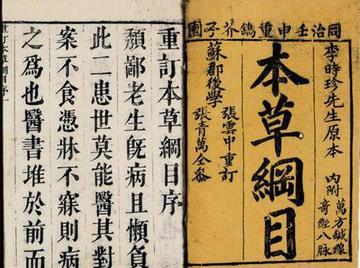 同治壬申重鐫芥子園
李時珍先生原本
內附
萬方鍼線
奇經八脉
本草綱目
蘇郡後學
張雲中重訂
張青萬仝參
重訂本草綱目序
頹鄙老生旣病且懶負
此二患世莫能醫其對
案不食憑牀不寐則病
之爲也醫書堆於前而